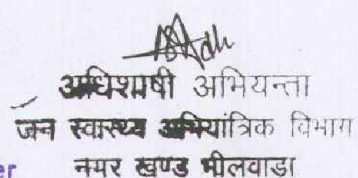 अधिशाषी अभियन्ता
जन स्वास्थ्य अभियांत्रिक विभाग
er नगर खण्ड भीलवाडा